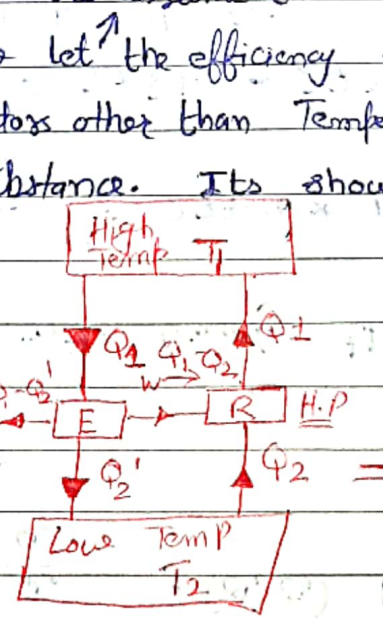 let the efficiency.
other than Tempe
bstance. Its shou
High
Temp T1
Q1
Q1
Q1-Q2
W
-Q2'
E
R
H.P
Q2'
Q2
=
Low Temp
T2